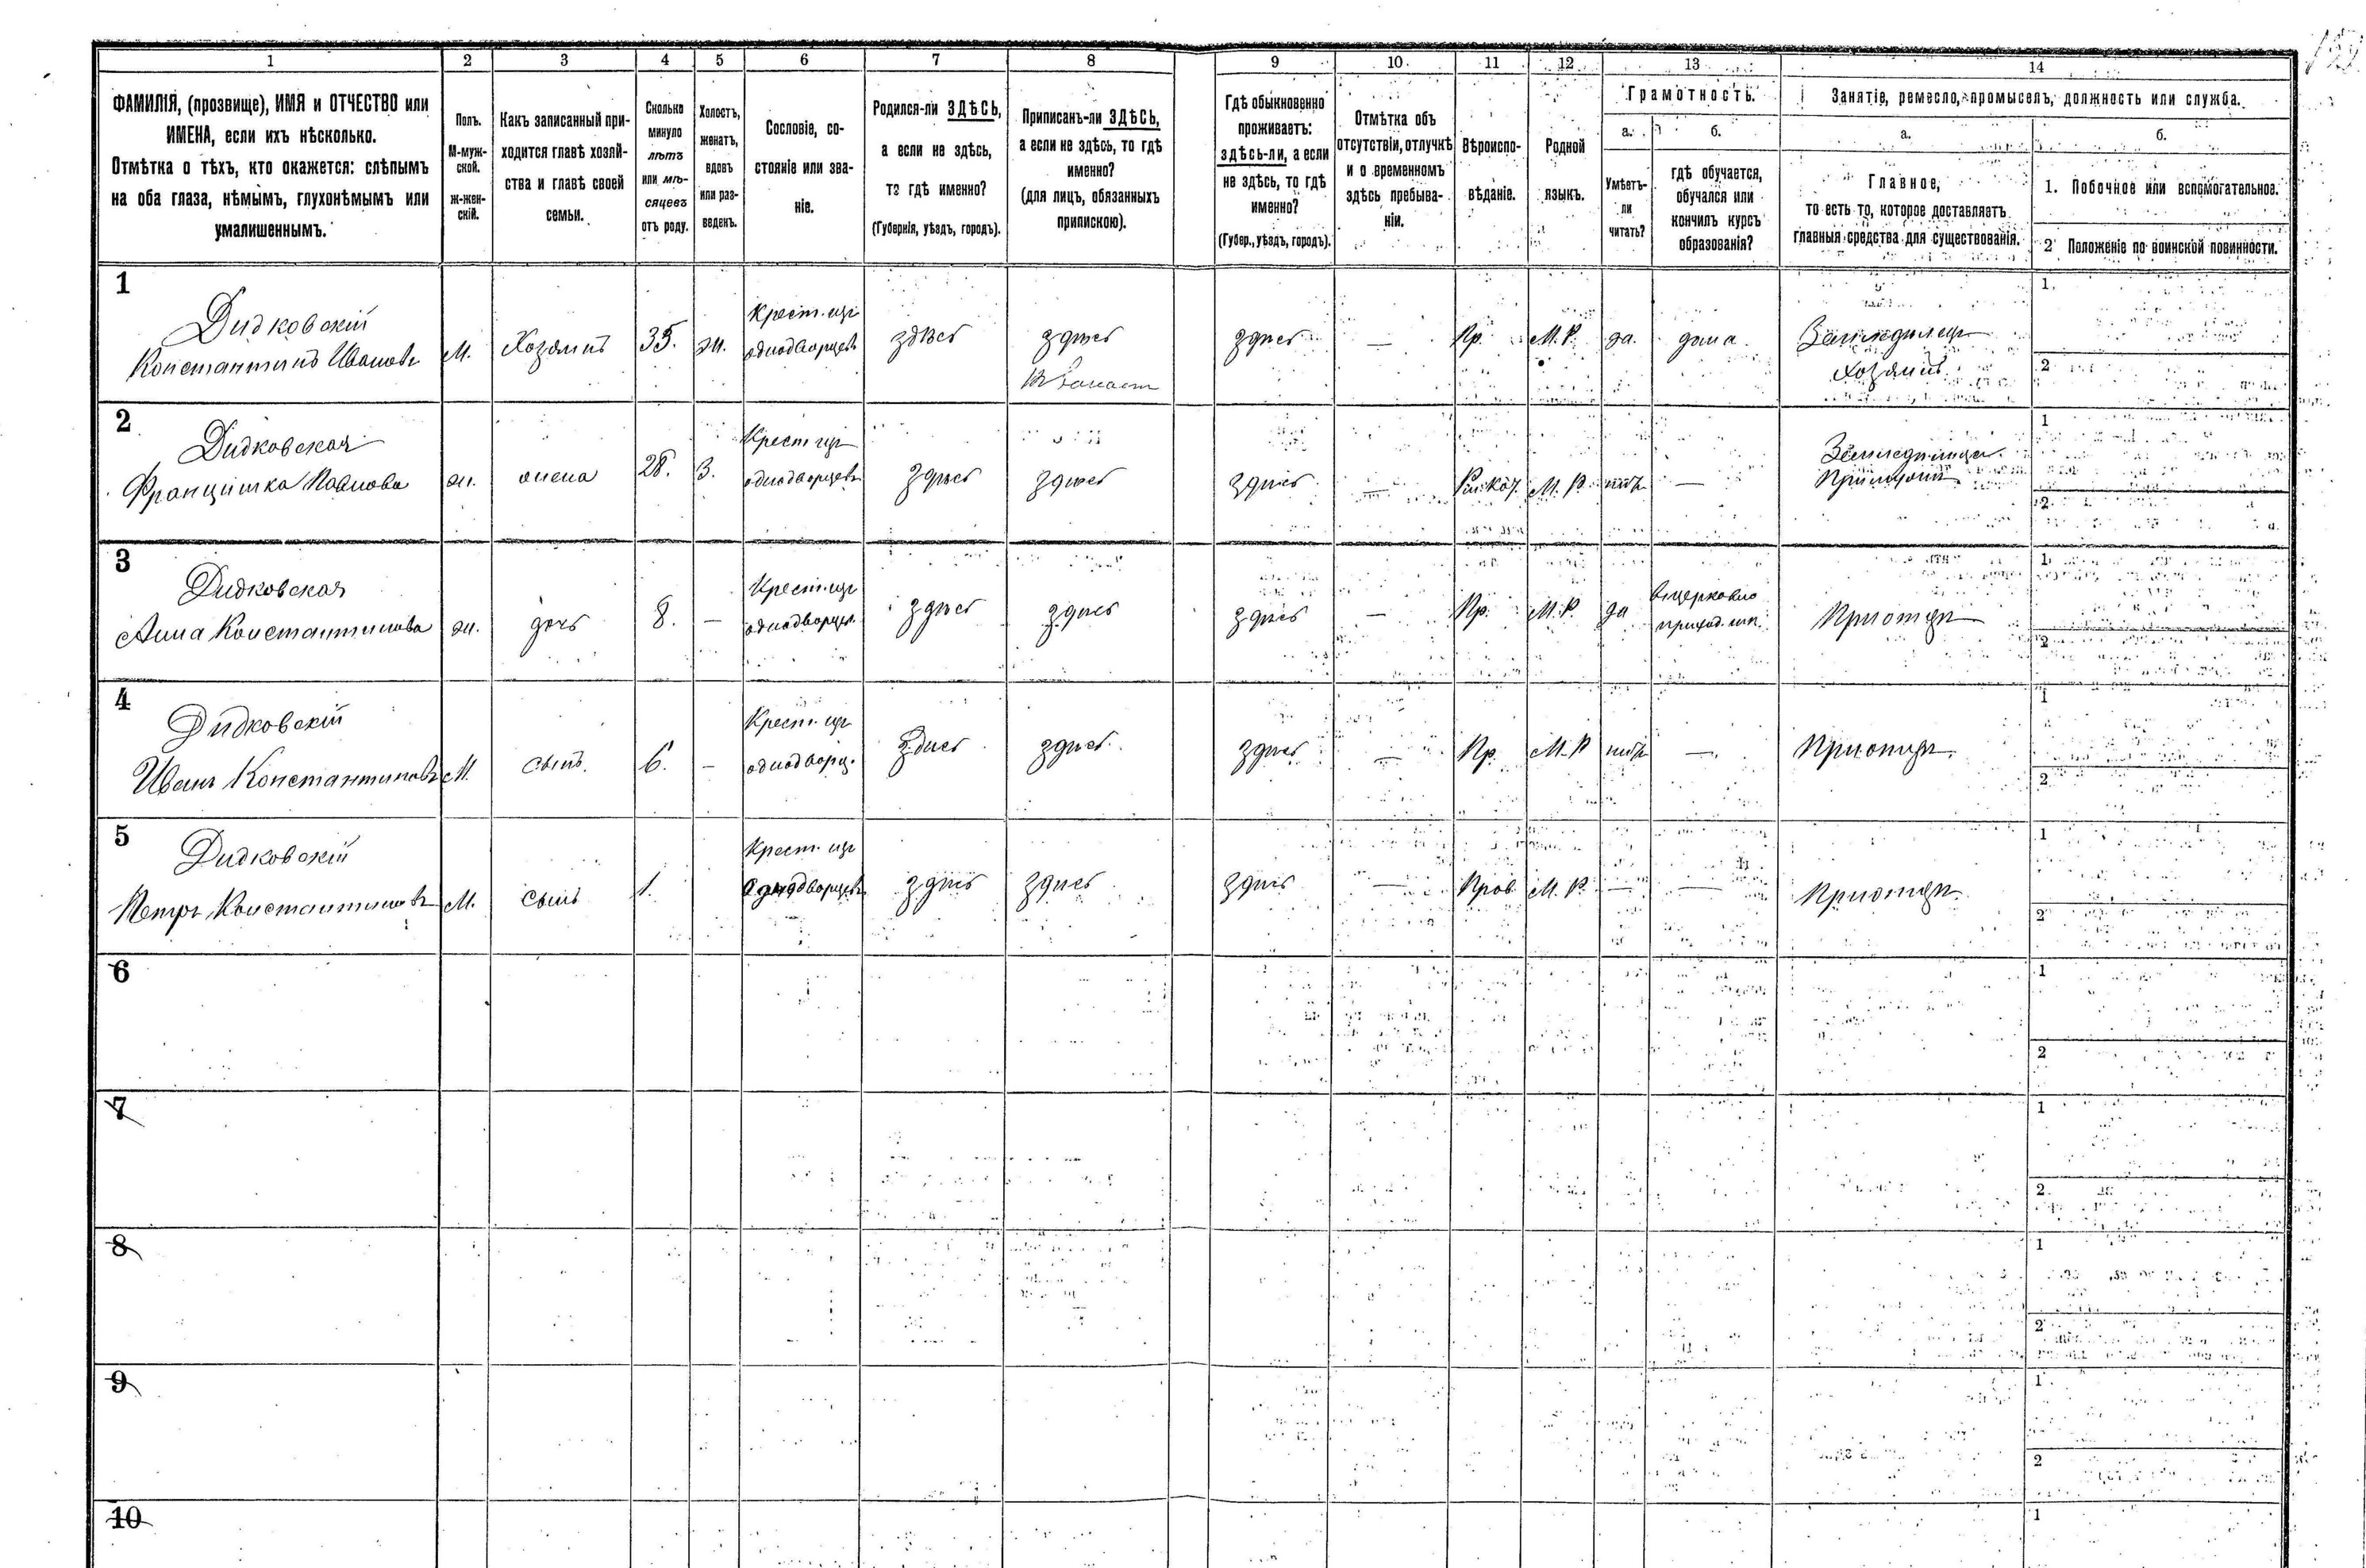 1 2 3 4 5 6 7 8 9 10 11 12 13 14
ФАМИЛІЯ, (прозвище), ИМЯ и ОТЧЕСТВО или
ИМЕНА, если ихъ нѣсколько.
Отмѣтка о тѣхъ, кто окажется: слѣпымъ
на оба глаза, нѣмымъ, глухонѣмымъ или
умалишеннымъ.
Полъ.
М-муж-
ской.
ж-жен-
скій.
Какъ записанный при-
ходится главѣ хозяй-
ства и главѣ своей
семьи.
Сколько
минуло
лѣтъ
или мѣ-
сяцевъ
отъ роду.
Холостъ,
женатъ,
вдовъ
или раз-
веденъ.
Сословіе, со-
стояніе или зва-
ніе.
Родился-ли ЗДѢСЬ,
а если не здѣсь,
то гдѣ именно?
(Губернія, уѣздъ, городъ).
Приписанъ-ли ЗДѢСЬ,
а если не здѣсь, то гдѣ
именно?
(для лицъ, обязанныхъ
припискою).
Гдѣ обыкновенно
проживаетъ:
здѣсь-ли, а если
не здѣсь, то гдѣ
именно?
(Губер., уѣздъ, городъ).
Отмѣтка объ
отсутствіи, отлучкѣ
и о временномъ
здѣсь пребыва-
ніи.
Вѣроиспо-
вѣданіе.
Родной
языкъ.
Грамотность.
а.
Умѣетъ-
ли
читать?
б.
гдѣ обучается,
обучался или
кончилъ курсъ
образованія?
Занятіе, ремесло, промыселъ, должность или служба.
а.
Главное,
то есть то, которое доставляетъ
главныя средства для существованія.
б.
1. Побочное или вспомогательное.
2 Положеніе по воинской повинности.
1
Дидковскій
Константинъ Ивановъ
М.
Хозяинъ
35.
ж.
Крест. изъ
однодворцевъ
здѣсь
здѣсь
здѣсь
—
Пр.
М. Р.
да
дома
Земледѣлец
хозяинъ
1.
2
2
Дидковская
Францишка Павлова
ж.
жена
28.
З.
Крест изъ
однодворцевъ
здѣсь
здѣсь
здѣсь
—
Рим. Кат.
М. Р.
нѣтъ
—
1
2
3
Дидковская
Анна Константинова
ж.
дочь
8.
—
Крест. изъ
однодворцевъ
здѣсь
здѣсь
здѣсь
—
Пр.
М. Р.
да
въ церковно
приход. шк.
При отцѣ
1
2
4
Дидковскій
Иванъ Константиновъ
М.
сынъ.
6.
—
Крест. изъ
однодворц.
здѣсь
здѣсь
здѣсь
—
Пр.
М. Р
нѣтъ
—
При отцѣ
1
2
5
Дидковскій
Петръ Константиновъ
М.
сынъ
1.
Крест. изъ
однодворцевъ
здѣсь
здѣсь
здѣсь
—
Прав.
М. Р.
—
—
При отцѣ
1
2
6
1
2
7
1
2
8
1
2
9
1
2
10
1